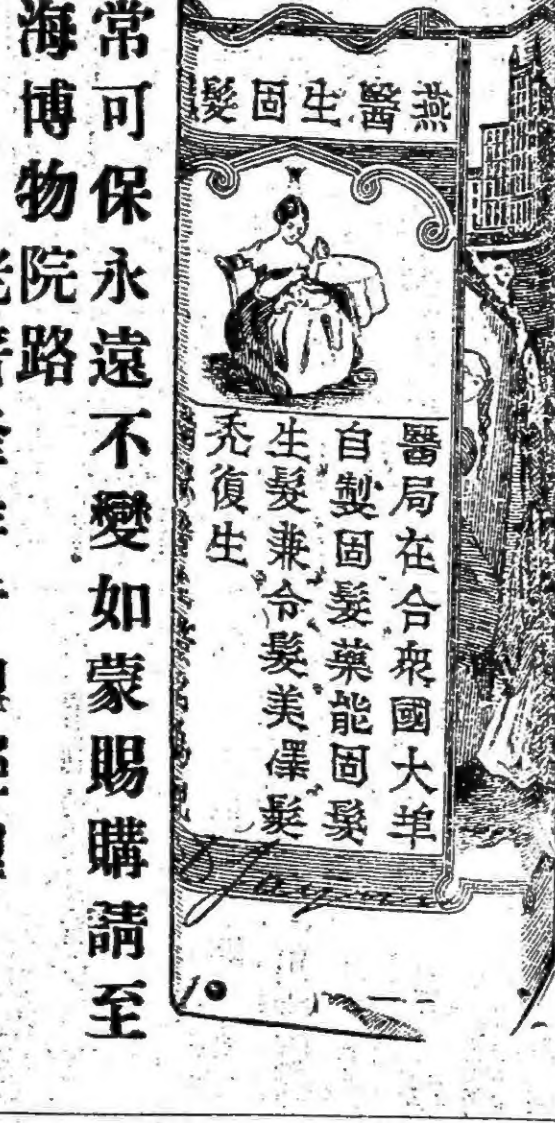 燕醫生固髮
醫局在合衆國大埠
自製固髮藥能固髮
生髮兼令髮美澤髮
禿復生
常可保永遠不變如蒙賜購請至
海博物院路